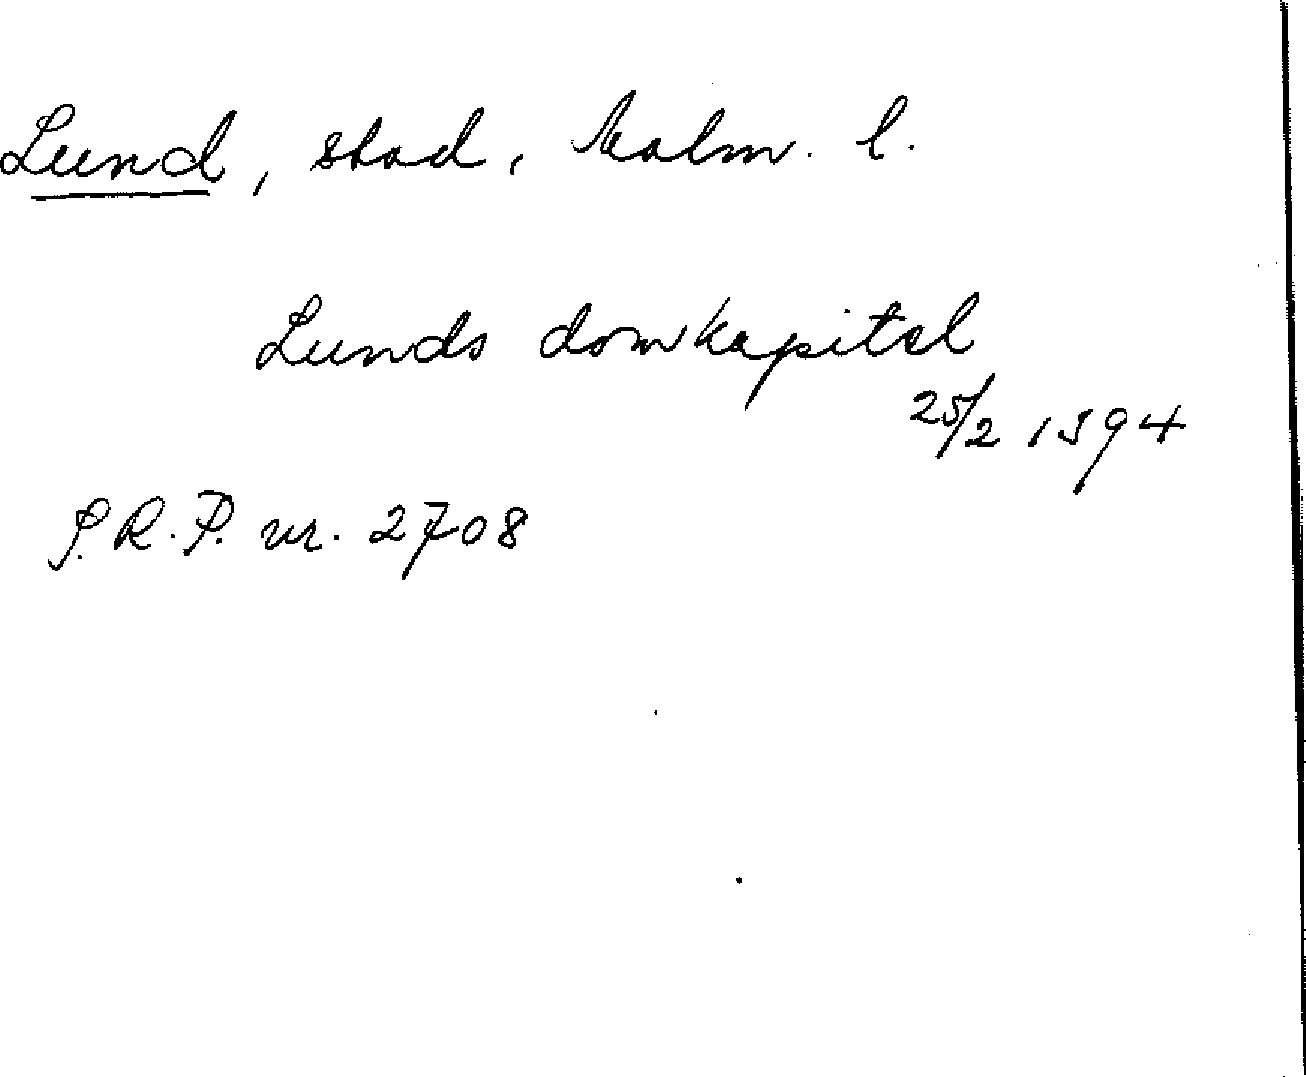 Lund, stad, Malm. l.
Lunds domkapitel
25/2 1394
S.R.P. nr. 2708